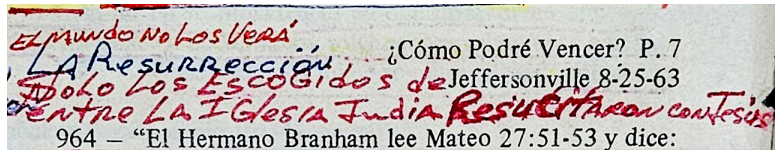 EL MUNDO NO LOS VERÁ
LA RESURRECCIÓN. ¿Cómo Podré Vencer? P. 7
SOLO LOS ESCOGIDOS de Jeffersonville 8-25-63
ENTRE LA IGLESIA Judia Resucitaron con Jesús
964 – “El Hermano Branham lee Mateo 27:51-53 y dice: